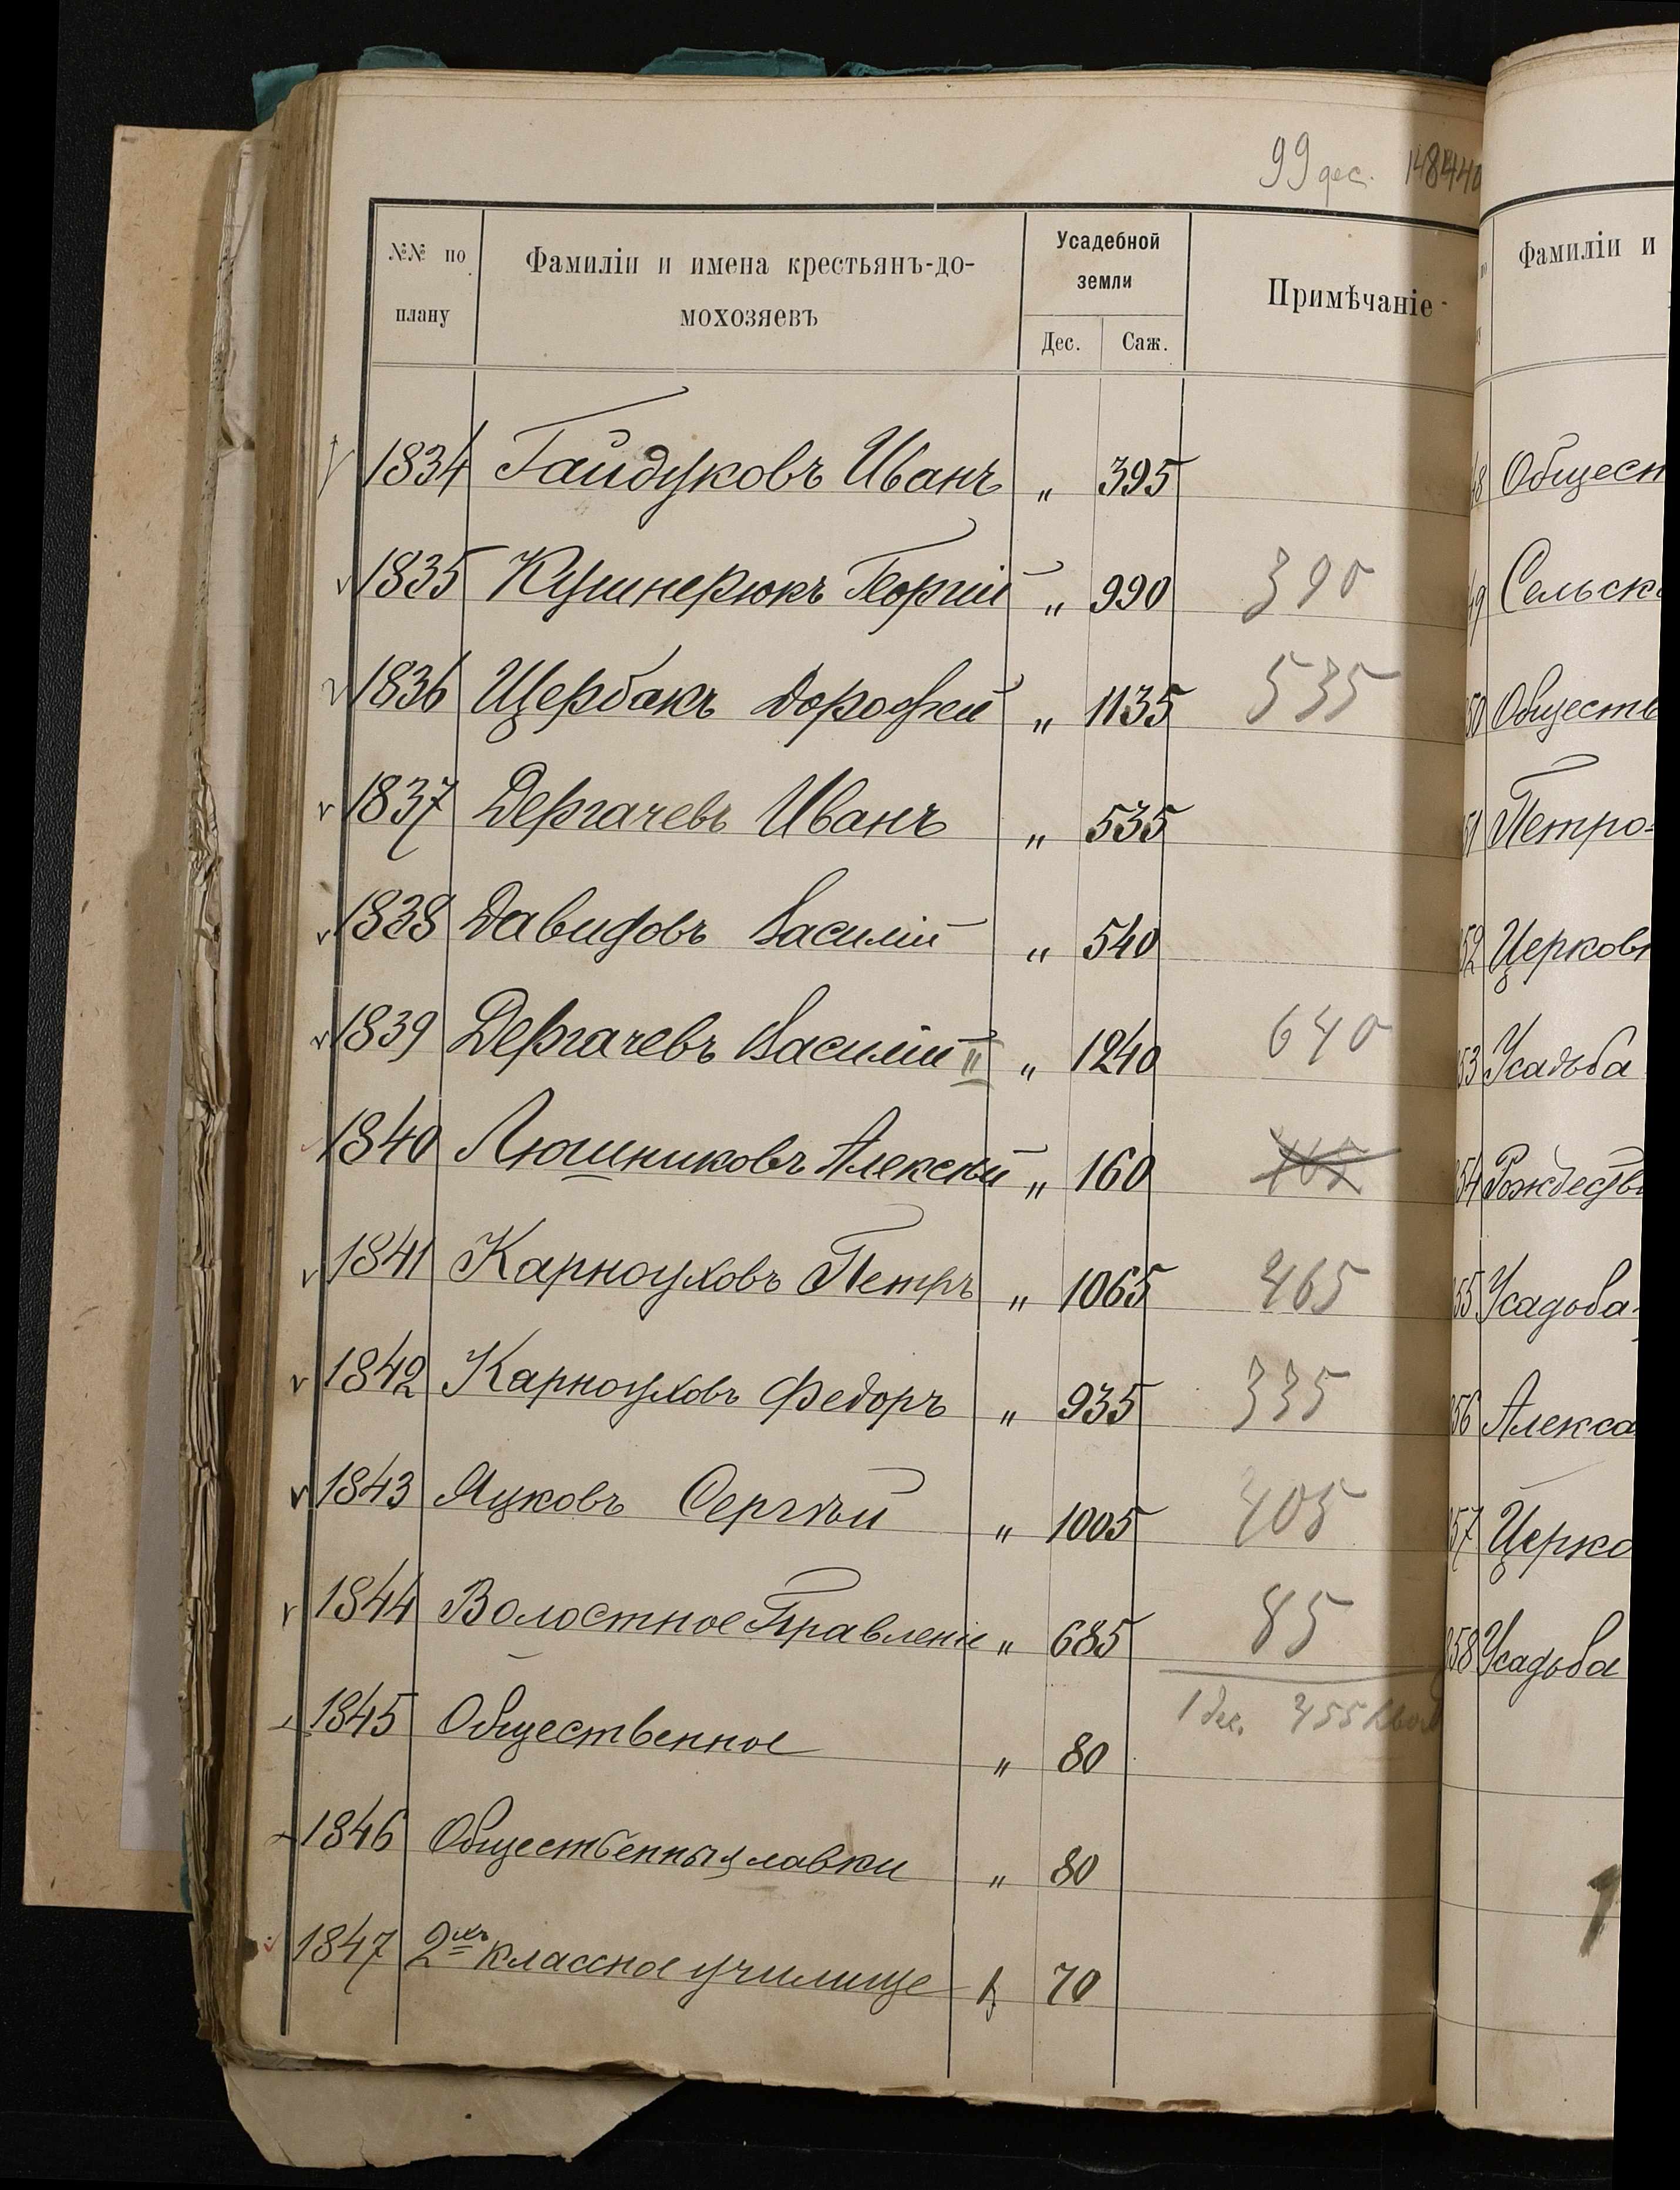 99 дес.
№№ по плану
Фамиліи и имена крестьянъ-до-
мохозяевъ
Усадебной
земли
Дес. Саж.
Примѣчаніе
1834 Гайдуковъ Иванъ „ 395
1835 Кушнерюкъ Георгій „ 990 390
1836 Щербакъ Дорофей „ 1135 535
1837 Дергачевъ Иванъ „ 535
1838 Давидовъ Василій „ 540
1839 Дергачевъ Василій II „ 1240 640
1840 Люшниковъ Алексѣй „ 160
1841 Карноуховъ Петръ „ 1065 465
1842 Карноуховъ Федоръ „ 935 335
1843 Яцковъ Сергѣй „ 1005 405
1844 Волостное Правленіе „ 685 85
1 дес. 455
1845 Общественное „ 80
1846 Общественныя лавки „ 80
1847 2хъ классное училище 70
Фамиліи и
Общест
Сельск
Обществ
Петро-
Церков
53 Усадьба
54 Рождеств
55 Усадьба
56 Алекса
57 Церко
58 Усадьба